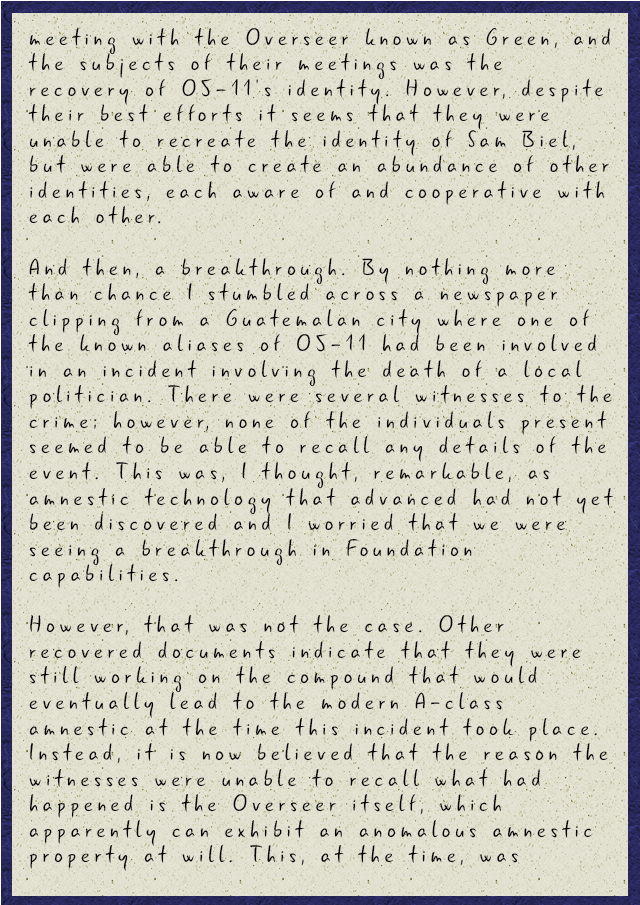 meeting with the Overseer known as Green, and
the subjects of their meetings was the
recovery of O5-11's identity. However, despite
their best efforts it seems that they were
unable to recreate the identity of Sam Biel,
but were able to create an abundance of other
identities, each aware of and cooperative with
each other.

And then, a breakthrough. By nothing more
than chance I stumbled across a newspaper
clipping from a Guatemalan city where one of
the known aliases of O5-11 had been involved
in an incident involving the death of a local
politician. There were several witnesses to the
crime; however, none of the individuals present
seemed to be able to recall any details of the
event. This was, I thought, remarkable, as
amnestic technology that advanced had not yet
been discovered and I worried that we were
seeing a breakthrough in Foundation
capabilities.

However, that was not the case. Other
recovered documents indicate that they were
still working on the compound that would
eventually lead to the modern A-class
amnestic at the time this incident took place.
Instead, it is now believed that the reason the
witnesses were unable to recall what had
happened is the Overseer itself, which
apparently can exhibit an anomalous amnestic
property at will. This, at the time, was